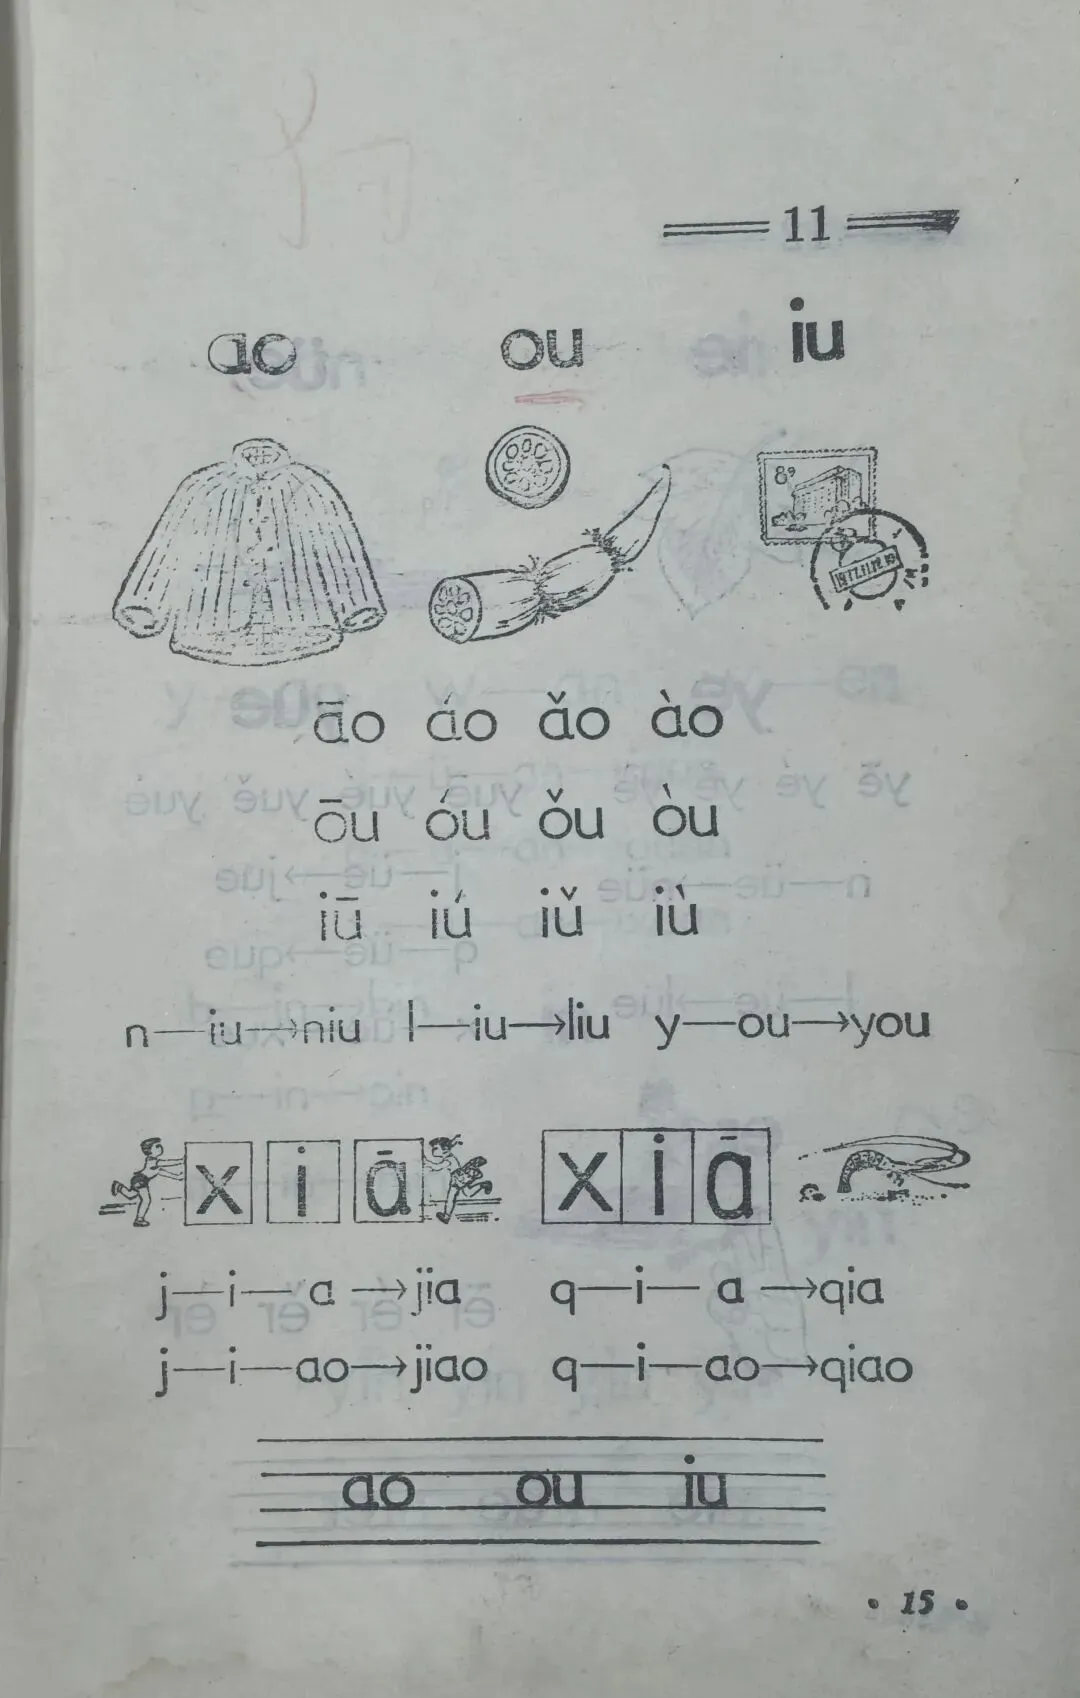 11
ao ou iu
8分
āo áo ǎo ào
ōu óu ǒu òu
iū iú iǔ iù
n—iu→niu l—iu→liu y—ou→you
x i ā xiā
j—i—a→jia q—i—a→qia
j—i—ao→jiao q—i—ao→qiao
ao ou iu
·15·